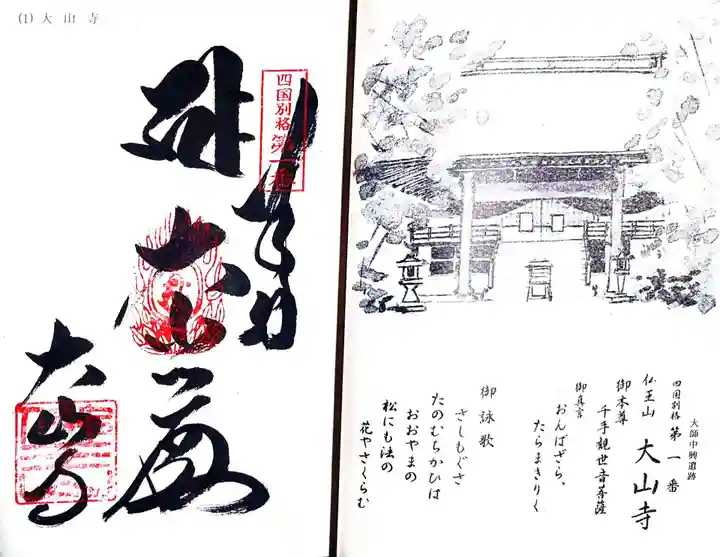 (1) 大山寺
四国別格第一番
奉拝
大悲殿
大山寺
大師中興遺跡
四国別格 第一番
仏王山 大山寺
御本尊
千手観世音菩薩
御真言
おんばざら、
たらまきりく
御詠歌
さしもぐさ
たのむちかひは
おおやまの
松にも法の
花やさくらむ